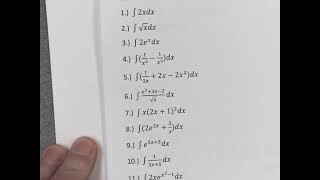 1.) ∫ 2xdx
2.) ∫ √x dx
3.) ∫ 2eˣdx
4.) ∫(1/x² − 1/x³)dx
5.) ∫(1/2x + 2x − 2x²)dx
6.) ∫ (x²+3x−2)/√x dx
7.) ∫ x(2x + 1)²dx
8.) ∫(2e³ˣ + 2/x)dx
9.) ∫ e⁵ˣ⁺³dx
10.) ∫ 1/(3x+5) dx
11.) ∫ 2xe^(x²−1)dx